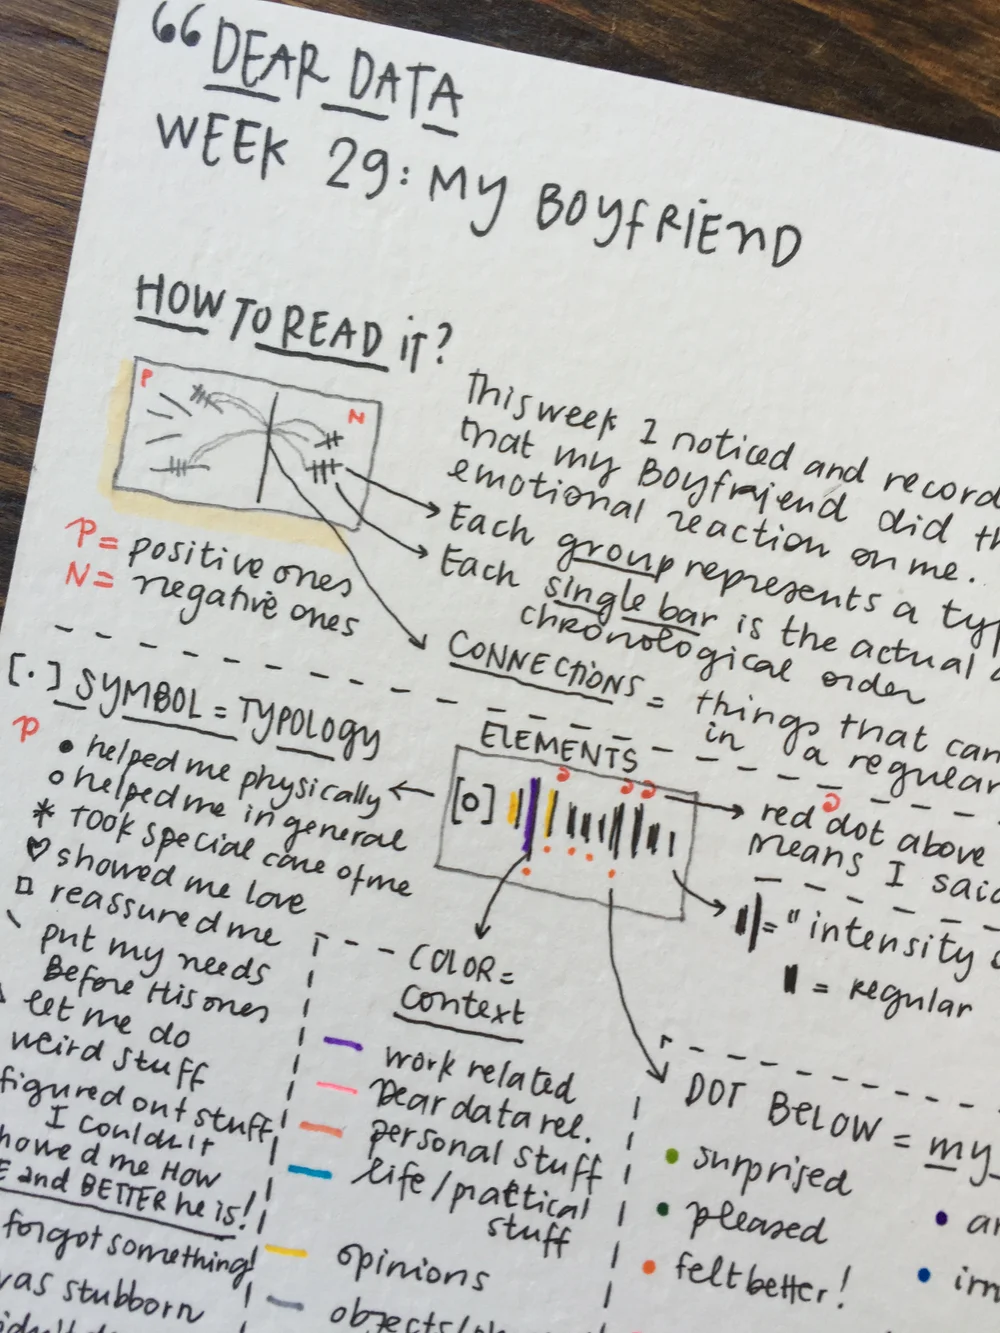 “ DEAR DATA
WEEK 29: MY BOYFRIEND
HOW TO READ iT?
P
N
P= positive ones
N= negative ones
This week I noticed and record
that my Boyfriend did th
emotional reaction on me.
Each group represents a typ
Each single bar is the actual
chronological order
CONNECTIONS = things that can
in a regular
[.] SYMBOL = TYPOLOGY
P
• helped me physically
o helped me in general
* took special care of me
♡ showed me love
□ reassured me
\ put my needs
Before His ones
let me do
weird stuff
figured out stuff
I couldn't
howed me How
E and BETTER he is!
forgot something!
was stubborn
ELEMENTS
[o]
red dot above
means I said
= "intensity
= regular
COLOR =
context
work related
Dear data rel.
personal stuff
life/practical
stuff
opinions
DOT BELOW = my
surprised
pleased
felt better!